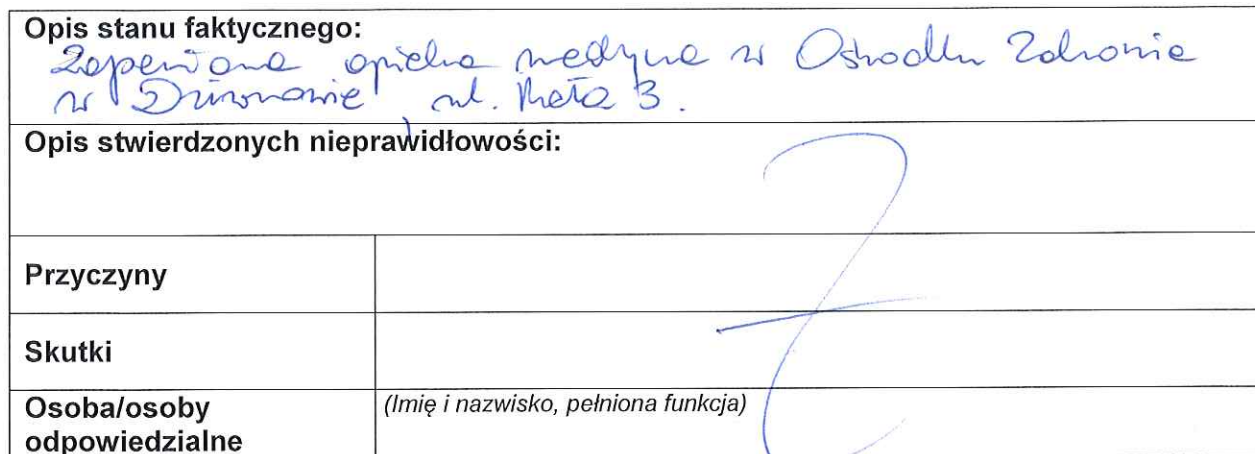 Opis stanu faktycznego:
Zapewniona opieka medyczna w Ośrodku Zdrowia
w Dziwnowie, ul. Mała 3.
Opis stwierdzonych nieprawidłowości:
Przyczyny
Skutki
Osoba/osoby odpowiedzialne
(Imię i nazwisko, pełniona funkcja)